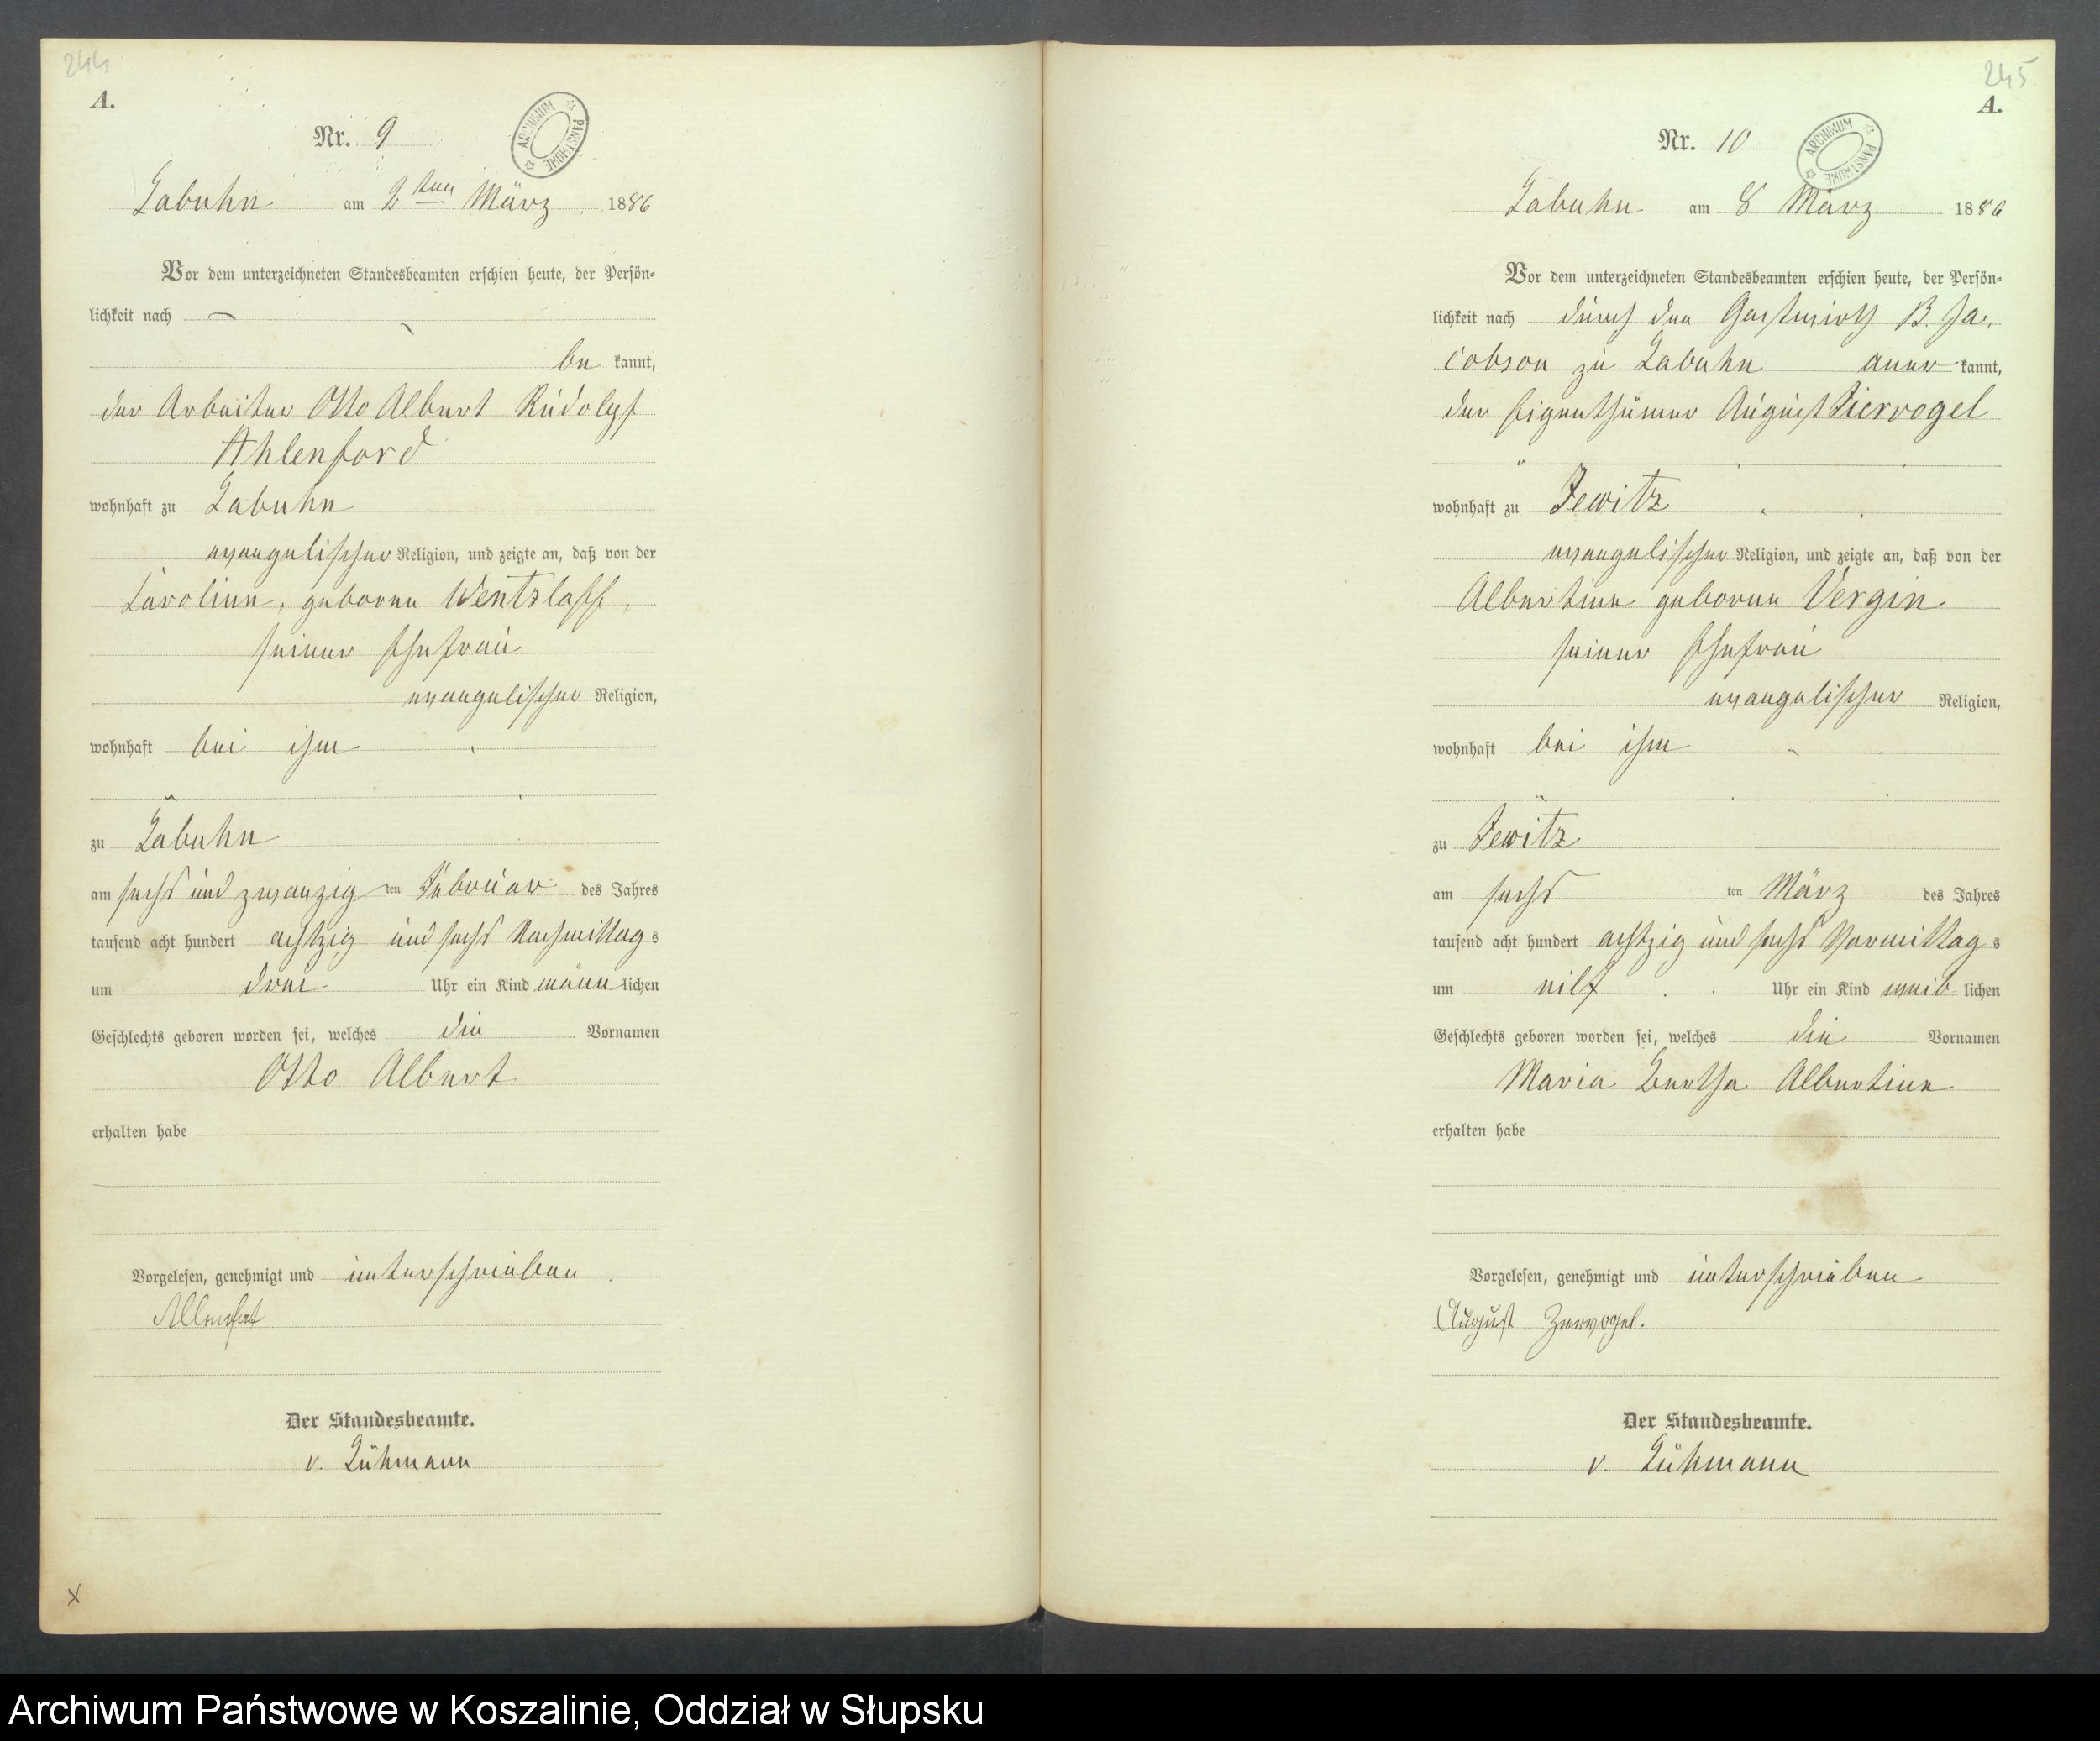 244
A.
Nr. 9
ARCHIWUM PAŃSTWOWE
Labuhn am 2ten März 1886
Vor dem unterzeichneten Standesbeamten erschien heute, der Persön-
lichkeit nach —
be kannt,
der Arbeiter Otto Albert Rudolph
Ahlenford
wohnhaft zu Labuhn
evangelischer Religion, und zeigte an, daß von der
Caroline, geborne Wentzlaff,
seiner Ehefrau
evangelischer Religion,
wohnhaft bei ihm
zu Labuhn
am sechs und zwanzig ten Februar des Jahres
tausend acht hundert achtzig und sechs Nachmittag s
um drei Uhr ein Kind männ lichen
Geschlechts geboren worden sei, welches die Vornamen
Otto Albert
erhalten habe
Vorgelesen, genehmigt und unterschrieben
Der Standesbeamte.
v. Lühmann
x
245
A.
Nr. 10
ARCHIWUM PAŃSTWOWE
Labuhn am 8 März 1886
Vor dem unterzeichneten Standesbeamten erschien heute, der Persön-
lichkeit nach durch den Gastwirth B. Ja-
cobson zu Labuhn aner kannt,
der Eigenthümer August Ziervogel
wohnhaft zu Jewitz
evangelischer Religion, und zeigte an, daß von der
Albertine geborne Vergin
seiner Ehefrau
evangelischer Religion,
wohnhaft bei ihm
zu Jewitz
am sechs ten März des Jahres
tausend acht hundert achtzig und sechs Vormittag s
um eilf Uhr ein Kind weib lichen
Geschlechts geboren worden sei, welches die Vornamen
Maria Bertha Albertine
erhalten habe
Vorgelesen, genehmigt und unterschrieben
August Zervogel.
Der Standesbeamte.
v. Lühmann
Archiwum Państwowe w Koszalinie, Oddział w Słupsku